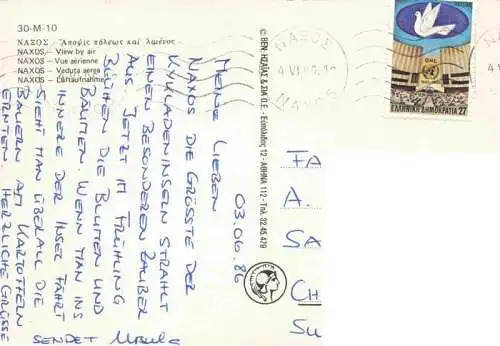 30-M-10
ΝΑΞΟΣ - Ἄποψις πόλεως καὶ λιμένος -
NAXOS. - View by air
NAXOS. - Vue aérienne
NAXOS. - Veduta aerea
NAXOS. - Luftaufnahme
03.06.86
MEINE LIEBEN
NAXOS DIE GRÖSSTE DER
KYKLADENINSELN STRAHLT
EINEN BESONDEREN ZAUBER
AUS. JETZT IM FRÜHLING
BLÜHEN DIE BLUMEN UND
BÄUMEN. WENN MAN INS
INNERE DER INSEL FÄHRT
SIEHT MAN ÜBERALL DIE
BAUERN AM KARTOFFELN
ERNTEN. HERZLICHE GRÜSSE
SENDET Ursula
© ΒΕΝ. ΗΣΑΪΑΣ & ΣΙΑ Ο.Ε. - Ευπόλιδος 12 - ΑΘΗΝΑ 112 - Τηλ. 32.45.479
FA
A.
SA
CH
SU
ΝΑΞΟΥ
NAXOS
ΟΗΕ
ΕΛΛΗΝΙΚΗ ΔΗΜΟΚΡΑΤΙΑ 27